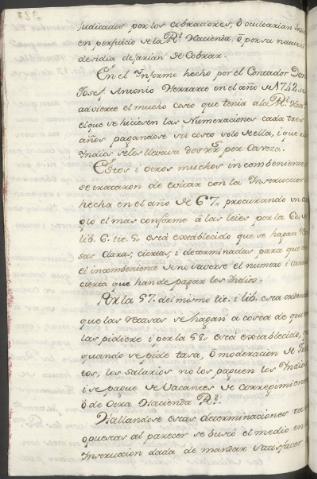 judicados por los cobradores, ô ocultarian
en perjuicio de la Rl. Hacienda, ô por su natural
desidia dejarian de Cobrar.
En el Informe hecho por el Contador Don
Josef Antonio Herrarte en el año de 1748 se
advierte el mucho costo que tenia a la Rl. Haz.
el que se hiciesen las Numeraciones cada tres
años pagandose un costo solo de ella, i que
Indios se les llevava dos rs. por Caveza.
Estos i otros muchos incombenientes
se trataron de evitar con la Instruccion
hecha en el año de 67. procurando un
gio el mas conforme á las leies por la
lib. 6. tit. 5. está establecido que se hagan
sas claras, ciertas, i determinadas para que
el incombeniente de no saverse el numero i
cierta que han de pagar los Indios.
Por la 57. del mismo tit. i lib. está ordenado
que las tasas se hagan á costa de que
las pidiere i por la 58. está establecido
quando se pide tasa, ô moderacion de
tos, los salarios no los paguen los Indios
i se pague de Vacantes de corregimientos
ô de otra Hacienda Rl.
Hallandose estas determinaciones tan
opuestas al parecer se buscó el medio en
Instruccion dada de mandar satisfacer